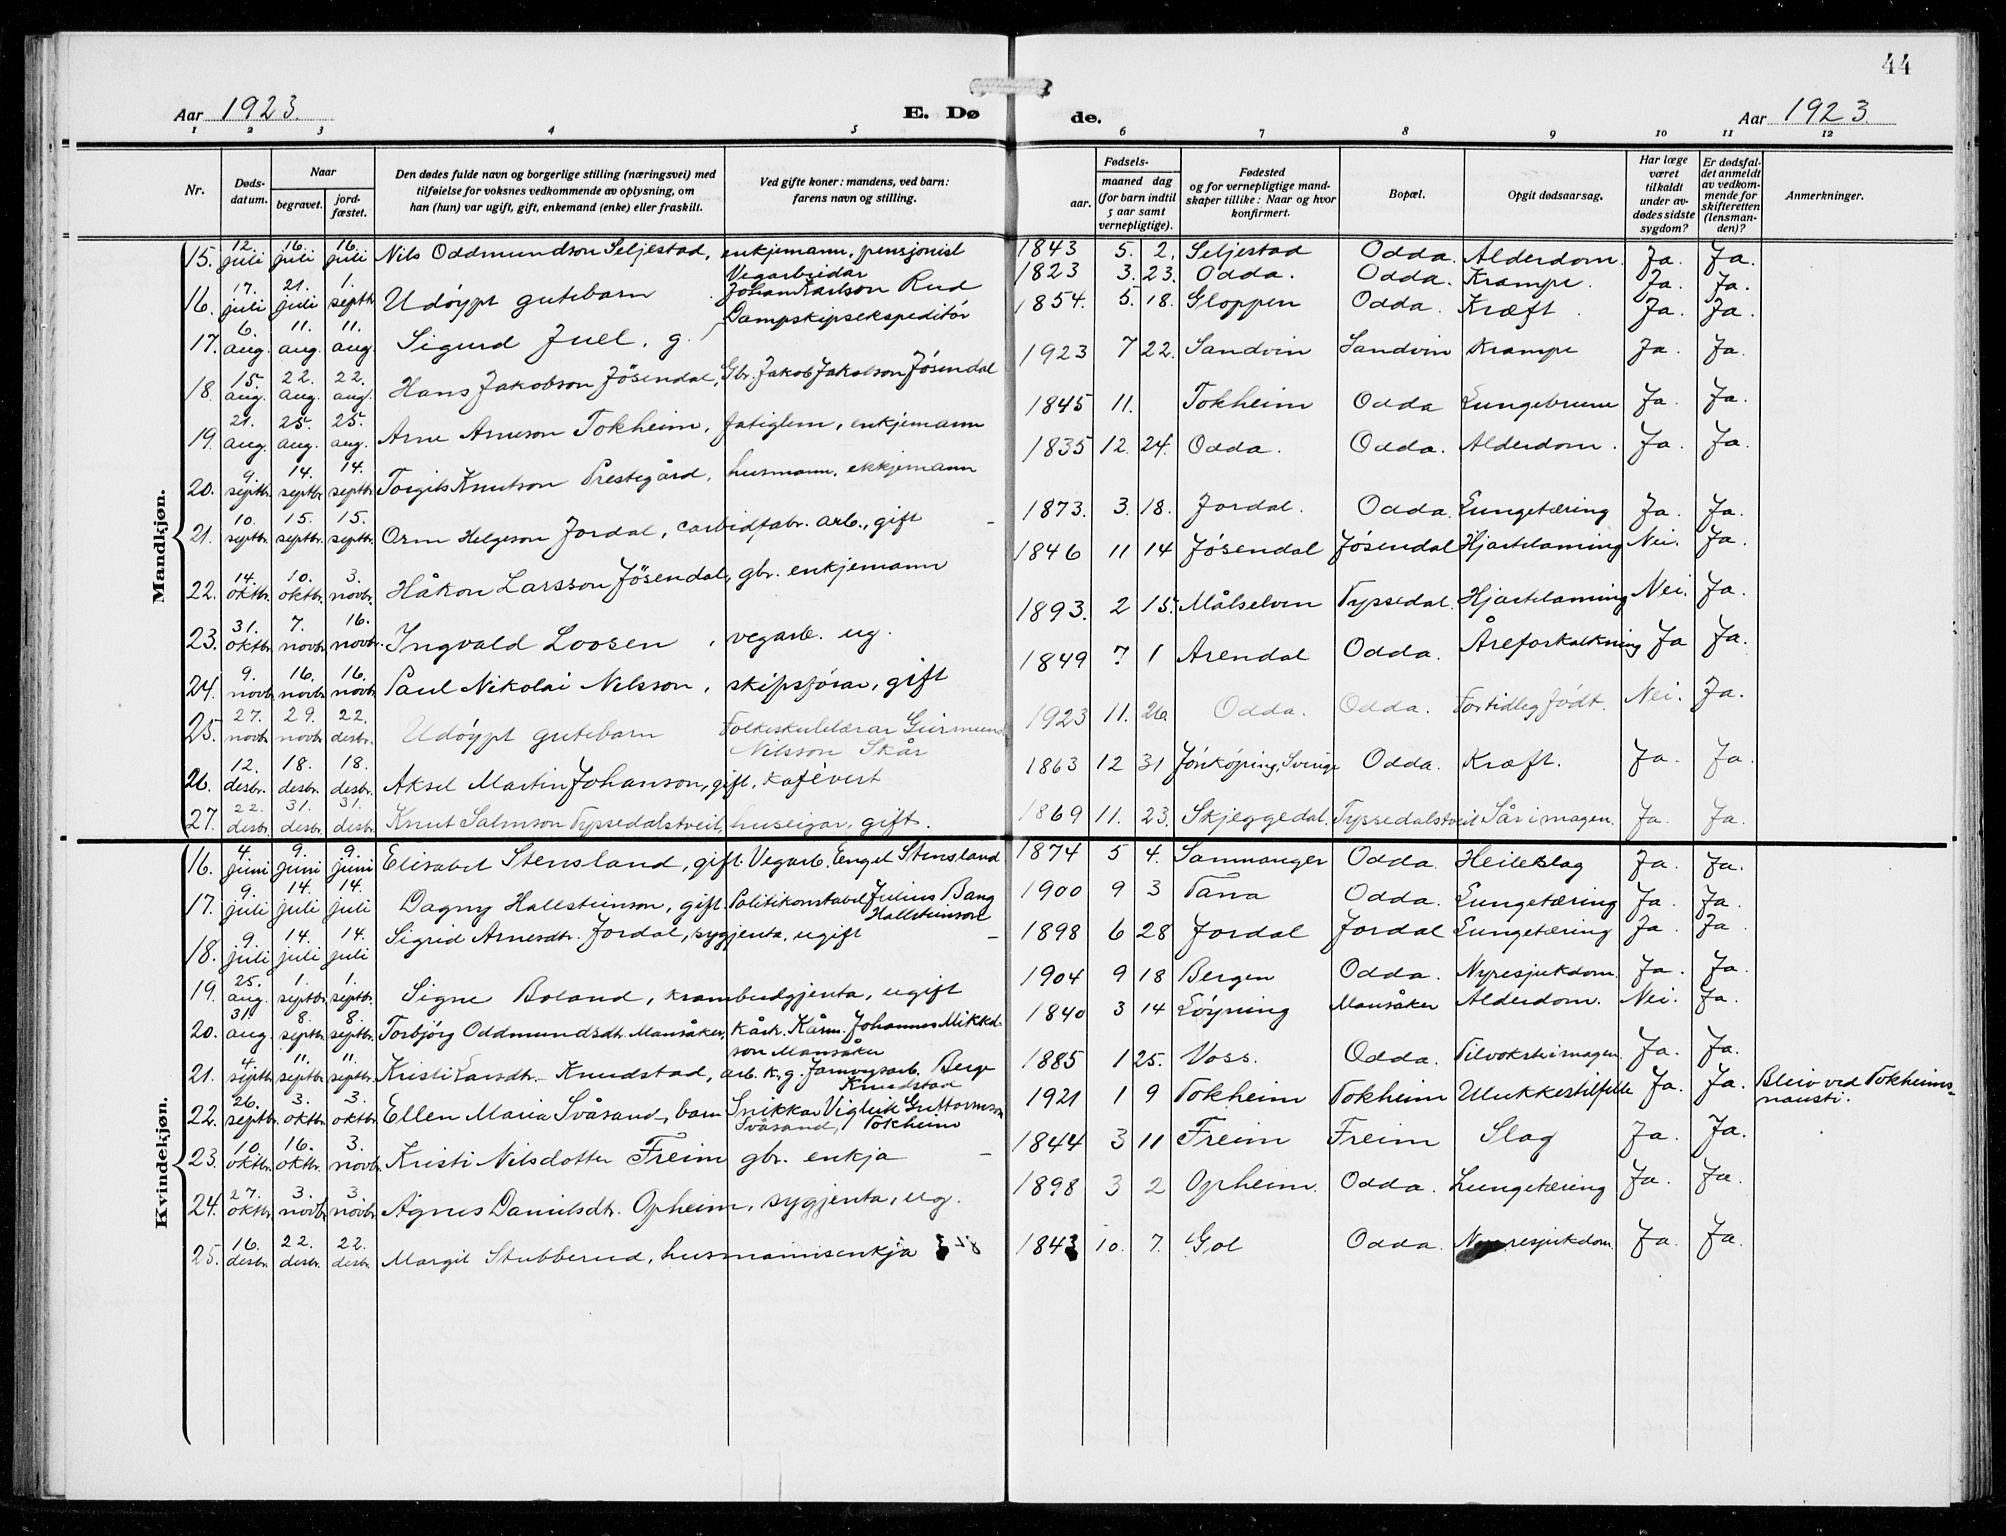 44
Aar 1923. E. Dø de. Aar 1923.
1 2 3 4 5 6 7 8 9 10 11 12
Nr.
Døds-
datum.
Naar
begravet.
jord-
fæstet.
Den dødes fulde navn og borgerlige stilling (næringsvei) med
tilføielse for voksnes vedkommende av oplysning, om
han (hun) var ugift, gift, enkemand (enke) eller fraskilt.
Ved gifte koner: mandens, ved barn:
farens navn og stilling.
Fødsels-
aar.
maaned dag
(for barn indtil
5 aar samt
vernepligtige).
Fødested
og for vernepligtige mand-
skaper tillike: Naar og hvor
konfirmert.
Bopæl.
Opgit dødsaarsag.
Har læge
været
tilkaldt
under av-
dødes sidste
sygdom?
Er dødsfal-
det anmeldt
av vedkom-
mende for
skifteretten
(lensman-
den)?
Anmerkninger.
Mandkjøn.
15. 12. juli 16. juli 16. juli Nils Oddmundson Seljestad, enkjemann, pensjonist 1843 5. 2. Seljestad Odda. Alderdom. Ja. Ja.
16. 17. juli 21. juli 1. septbr. Udøypt gutebarn Vegarbeidar Johan Karlson Rud 1823 3. 23. Odda. Odda. Krampe. Ja. Ja.
17. 6. aug. 11. aug. 11. aug. Sigurd Juel, g. Dampskipsekspeditør 1854. 5. 18. Gloppen Odda. Kræft. Ja. Ja.
18. 15. aug. 22. aug. 22. aug. Hans Jakobson Jøsendal, Gbr. Jakob Jakobson Jøsendal 1923 7 22. Sandvin Sandvin Krampe Ja. Ja.
19. 21. aug. 25. aug. 25. aug. Arne Arneson Tokheim, fatiglem, enkjemann 1845 11. Tokheim Odda Lungebrune Ja. Ja.
20. 9. septbr. 14. septbr. 14. septbr. Torgils Knutson Prestegård, husmann, ekkjemann 1835 12. 24. Odda. Odda. Alderdom. Ja. Ja.
21. 10. septbr. 15. septbr. 15. septbr. Orm Helgeson Jordal, carbidfabr. arb., gift 1873. 3. 18. Jordal. Odda. Lungetæring Ja. Ja.
22. 14. oktbr. 10. oktbr. 3. novbr. Håkon Larsson Jøsendal, gbr. enkjemann 1846 11 14 Jøsendal Jøsendal Hjartelaming Nei. Ja.
23. 31. oktbr. 7. novbr. 16. novbr. Ingvald Loosen, vegarb. ug. 1893. 2 15. Målselven Tyssedal. Hjartelaming Nei. Ja.
24. 9. novbr. 16. novbr. 16. novbr. Paul Nikolai Nelsson, skipsførar, gift 1849 7. 1 Arendal Odda. Åreforkalkning Ja Ja.
25. 27. novbr. 29. novbr. 22. desbr. Udøypt gutebarn Folkeskulelærar Geirmund Nilsson Skår 1923 11. 26. Odda. Odda. For tidleg født. Nei. Ja.
26. 12. desbr. 18. desbr. 18. desbr. Aksel Martin Johanson, gift, kafévert 1863 12 31 Jønkøping, Sverige Odda. Kræft. Ja. Ja.
27. 22. desbr. 31. desbr. 31. desbr. Knut Salmson Tyssedalstveit, huseigar, gift. 1869 11. 23. Skjeggedal. Tyssedalstveit Sår i magen. Ja. Ja.
Kvindekjøn.
16. 4. juni 9. juni 9. juni Elisabet Stensland, gift. Vegarb. Engel Stensland 1874 5 4. Sammanger Odda. Heileslag Ja. Ja.
17. 9. juli 14. juli 14. juli Dagny Hallsteinson, gift. Politikonstabel Julius Bang Hallsteinson 1900 9 3 Tana Odda. Lungetæring Ja. Ja.
18. 9. juli 14. juli 14. juli Sigrid Arnesdtr. Jordal, sygjenta, ugift 1898 6 28 Jordal Jordal Lungetæring Ja. Ja.
19. 25. aug. 1. septbr. 1. septbr. Signe Boland, krambudgjenta, ugift 1904 9 18 Bergen Odda. Nyresjukdom. Ja. Ja.
20. 31. aug. 8. septbr. 8. septbr. Torbjørg Oddmundsdtr. Mansåker, kårk. Kårm. Johannes Mikkelson Mansåker 1840 3 14 Løyning Mansåker Alderdom. Nei. Ja.
21. 4. septbr. 11. septbr. 11. septbr. Kristi Larsdtr. Knudstad, arb. k. g. Jarnvegsarb. Berge Knudstad 1885 1 25. Voss. Odda. Tilvokster i magen. Ja. Ja.
22. 26. septbr. 3. oktbr. 3. oktbr Ellen Maria Svåsand, barn Snikkar Vigleik Guttormson Svåsand, Tokheim 1921 1 9 Tokheim Tokheim Ulukkestilfelle Ja. Ja. Bleiv ved Tokheims-
nausti.
23. 10. oktbr. 16. oktbr. 3. novbr. Kristi Nilsdotter Freim gbr. enkja 1844 3 11 Freim Freim Slag Ja. Ja.
24. 27. oktbr. 3. novbr. 3. novbr. Agnes Danielsdtr. Opheim, sygjenta, ug. 1898 3 2 Opheim. Odda. Lungetæring Ja. Ja.
25. 16. desbr. 22. desbr. 22. desbr. Margit Stubberud, husmannsenkja 1843 10. 7. Gol Odda. Nyresjukdom Ja. Ja.